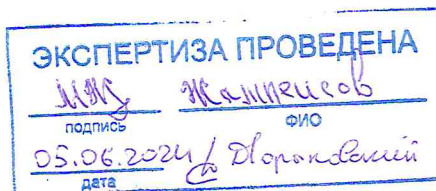 ЭКСПЕРТИЗА ПРОВЕДЕНА
Жампеисов
подпись ФИО
05.06.2024
дата